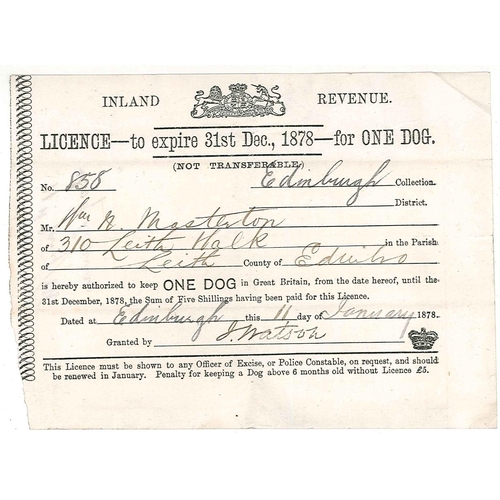 INLAND REVENUE.
LICENCE—to expire 31st Dec., 1878—for ONE DOG.
(NOT TRANSFERABLE)
No. 858 Edinburgh Collection.
District.
Mr. Wm R. Masterton
of 310 Leith Walk in the Parish
of Leith County of Edinbro
is hereby authorized to keep ONE DOG in Great Britain, from the date hereof, until the
31st December, 1878, the Sum of Five Shillings having been paid for this Licence.
Dated at Edinburgh this 11 day of January 1878.
Granted by J. Watson
This Licence must be shown to any Officer of Excise, or Police Constable, on request, and should
be renewed in January. Penalty for keeping a Dog above 6 months old without Licence £5.